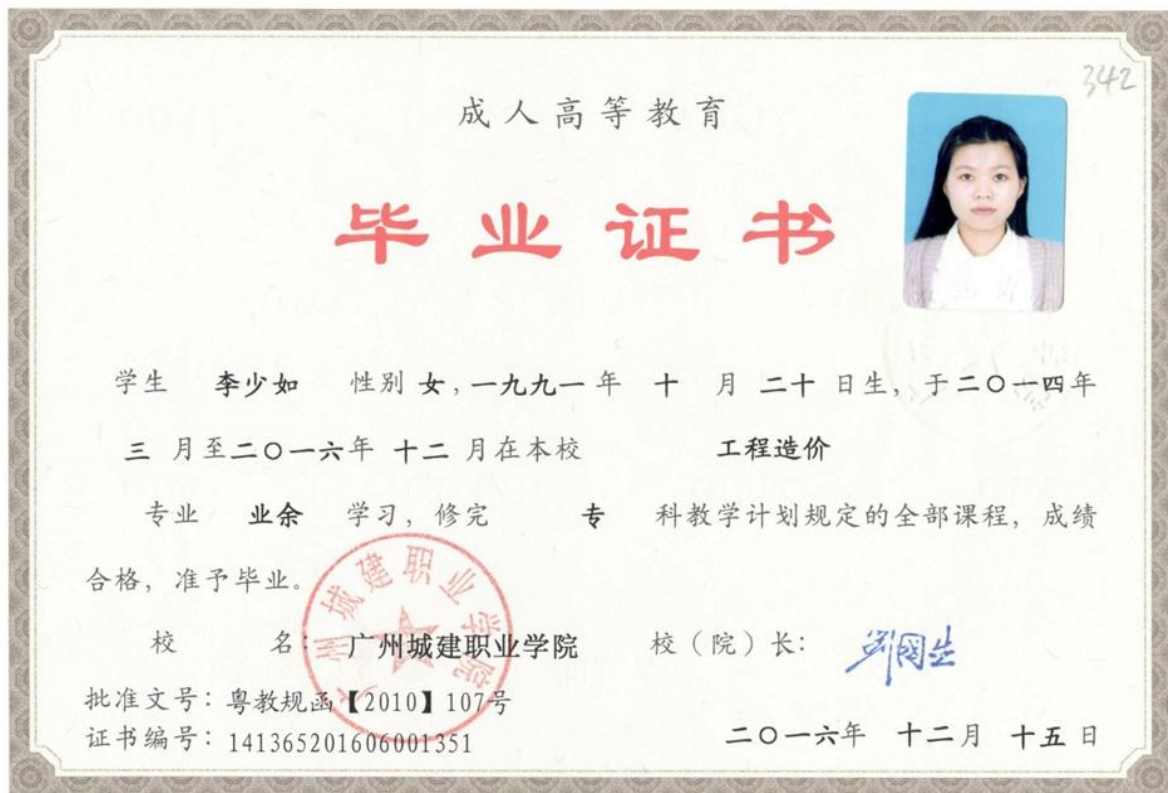 342
成人高等教育
毕业证书
学生 李少如 性别 女，一九九一 年 十 月 二十 日生，于二〇一四年
三 月至二〇一六年 十二 月在本校 工程造价
专业 业余 学习，修完 专 科教学计划规定的全部课程，成绩
合格，准予毕业。
校 名：广州城建职业学院 校（院）长：刘国生
广州城建职业学院
批准文号：粤教规函【2010】107号
证书编号：141365201606001351
二〇一六年 十二月 十五日